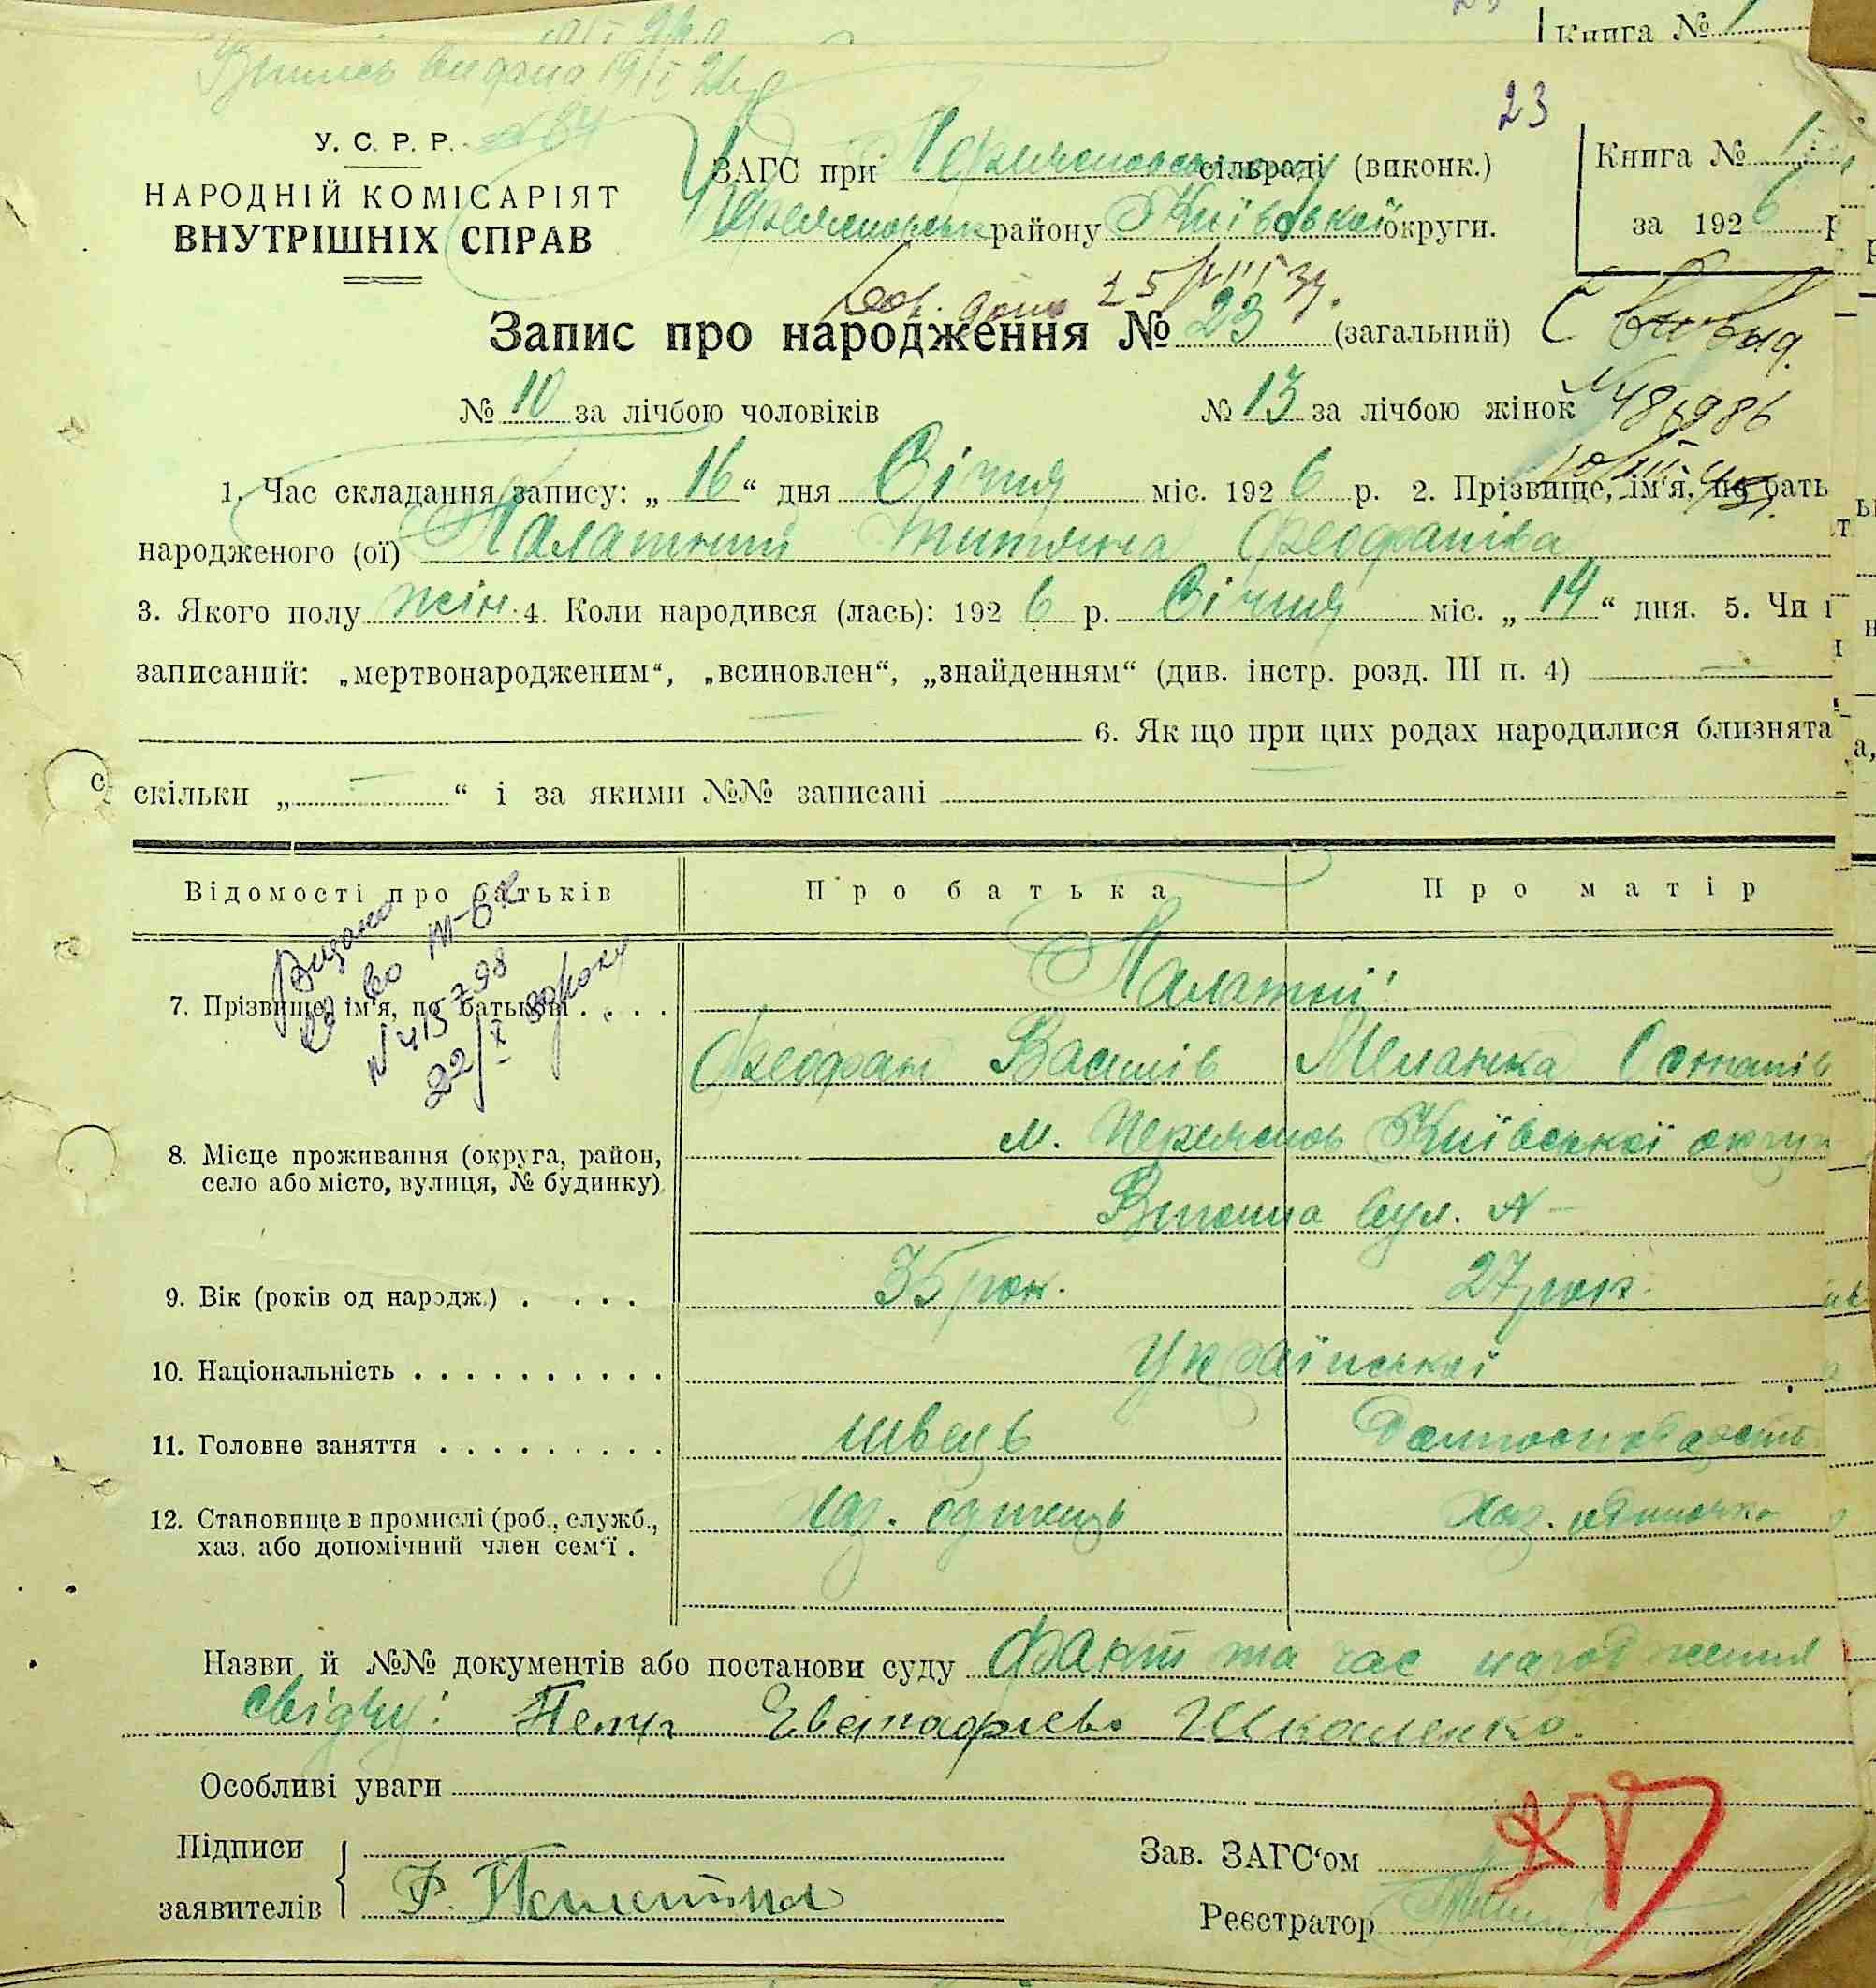 Книга №
Випись видана 19/I 26 р
№ 84
23
У. С. Р. Р.
НАРОДНІЙ КОМІСАРІЯТ
ВНУТРІШНІХ СПРАВ
ЗАГС при Переяславськ сільраді (виконк.)
Переяславськ району Київської округи.
Книга № 1
за 192 6 р
25/VIII 37.
Запис про народження № 23 (загальний)
№ 10 за лічбою чоловіків № 13 за лічбою жінок
1. Час складання запису: „ 16 “ дня Січня міс. 192 6 р. 2. Прізвище, ім'я, по бать
народженого (ої) Палатний Титяна Феофанівна
3. Якого полу жін. 4. Коли народився (лась): 192 6 р. Січня міс. „ 14 “ дня. 5. Чи і
записаний: „мертвонародженим“, „всиновлен“, „знайденням“ (див. інстр. розд. III п. 4) —
6. Як що при цих родах народилися близнята
скільки „ — “ і за якими №№ записані
Відомості про батьків Про батька Про матір
Видано
7. Прізвище, ім'я, по батькові . . . . Палатний
Феофан Василів Меланка Остапів
8. Місце проживання (округа, район,
село або місто, вулиця, № будинку)
м. Переяслов Київської округи
вул. № —
9. Вік (років од народж.) . . . . 35 рок. 27 рок.
10. Національність . . . . . . . . . . Української
11. Головне заняття . . . . . . . . . швець
12. Становище в промислі (роб., служб.,
хаз. або допомічний член сем'ї .
хаз. одинець хаз. одиночка
Назви й №№ документів або постанови суду Факт та час народження
свідчу: Шкаленко.
Особливі уваги
Підписи
заявителів
Зав. ЗАГС'ом
Реєстратор